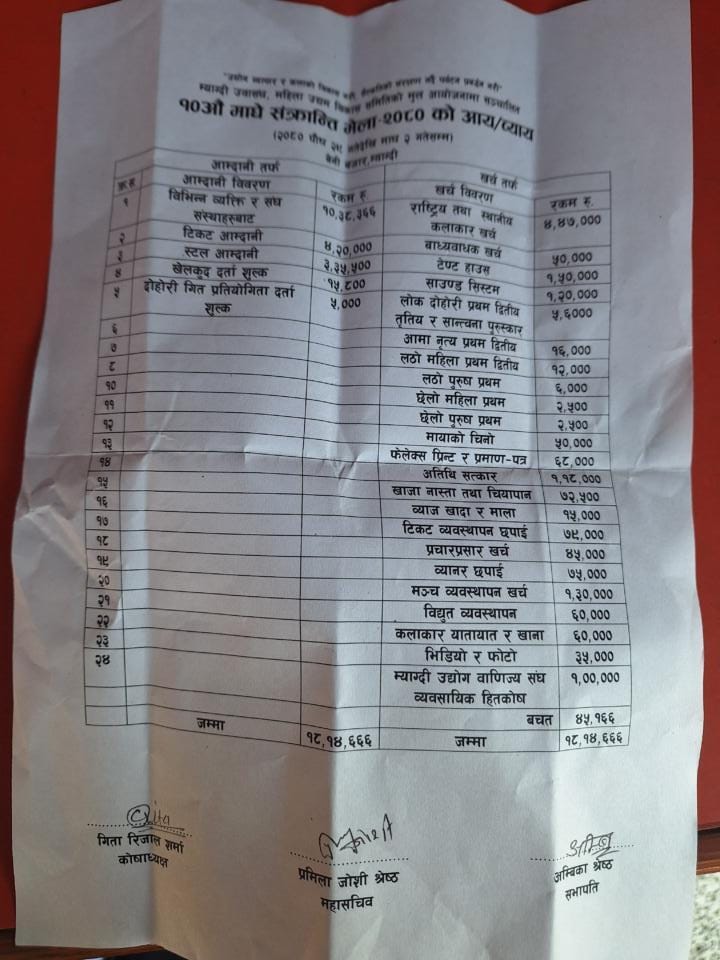 "उद्योग व्यापार र कलाको विकास गरौं, सँस्कृतिको संरक्षण गर्दै पर्यटन प्रवर्द्धन गरौं"
म्याग्दी उवासंघ, महिला उद्यम विकास समितिको मुल आयोजनामा सञ्चालित
१०औं माघे संक्रान्ति मेला-२०८० को आय/व्याय
(२०८० पौष २८ गतेदेखि माघ २ गतेसम्म)
बेनी बजार, म्याग्दी
आम्दानी तर्फ खर्च तर्फ
क्र.स. आम्दानी विवरण रकम रु. खर्च विवरण रकम रु.
१ विभिन्न व्यक्ति र संघ संस्थाहरुबाट १०,३८,३६६ राष्ट्रिय तथा स्थानीय कलाकार खर्च ४,४७,०००
२ टिकट आम्दानी ४,२०,००० बाध्यवाधक खर्च ५०,०००
३ स्टल आम्दानी ३,३५,५०० टेण्ट हाउस १,५०,०००
४ खेलकुद दर्ता शुल्क १५,८०० साउण्ड सिस्टम १,२०,०००
५ दोहोरी गित प्रतियोगिता दर्ता शुल्क ५,००० लोक दोहोरी प्रथम द्वितीय तृतिय र सान्त्वना पुरुस्कार ५,६०००
६ आमा नृत्य प्रथम द्वितीय १६,०००
७ लठो महिला प्रथम द्वितीय १२,०००
८ लठो पुरुष प्रथम ६,०००
१० छेलो महिला प्रथम २,५००
११ छेलो पुरुष प्रथम २,५००
१२ मायाको चिनो ५०,०००
१३ फेलेक्स प्रिन्ट र प्रमाण-पत्र ६८,०००
१४ अतिथि सत्कार १,१८,०००
१५ खाजा नास्ता तथा चियापान ७२,५००
१६ व्याज खादा र माला १५,०००
१७ टिकट व्यवस्थापन छपाई ७९,०००
१८ प्रचारप्रसार खर्च ४५,०००
१९ व्यानर छपाई ७५,०००
२० मञ्च व्यवस्थापन खर्च १,३०,०००
२१ विद्युत व्यवस्थापन ६०,०००
२२ कलाकार यातायात र खाना ६०,०००
२३ भिडियो र फोटो ३५,०००
२४ म्याग्दी उद्योग वाणिज्य संघ व्यवसायिक हितकोष १,००,०००
बचत ४५,१६६
जम्मा १८,१४,६६६ जम्मा १८,१४,६६६
गिता रिजाल शर्मा
कोषाध्यक्ष
प्रमिला जोशी श्रेष्ठ
महासचिव
अम्बिका श्रेष्ठ
सभापति